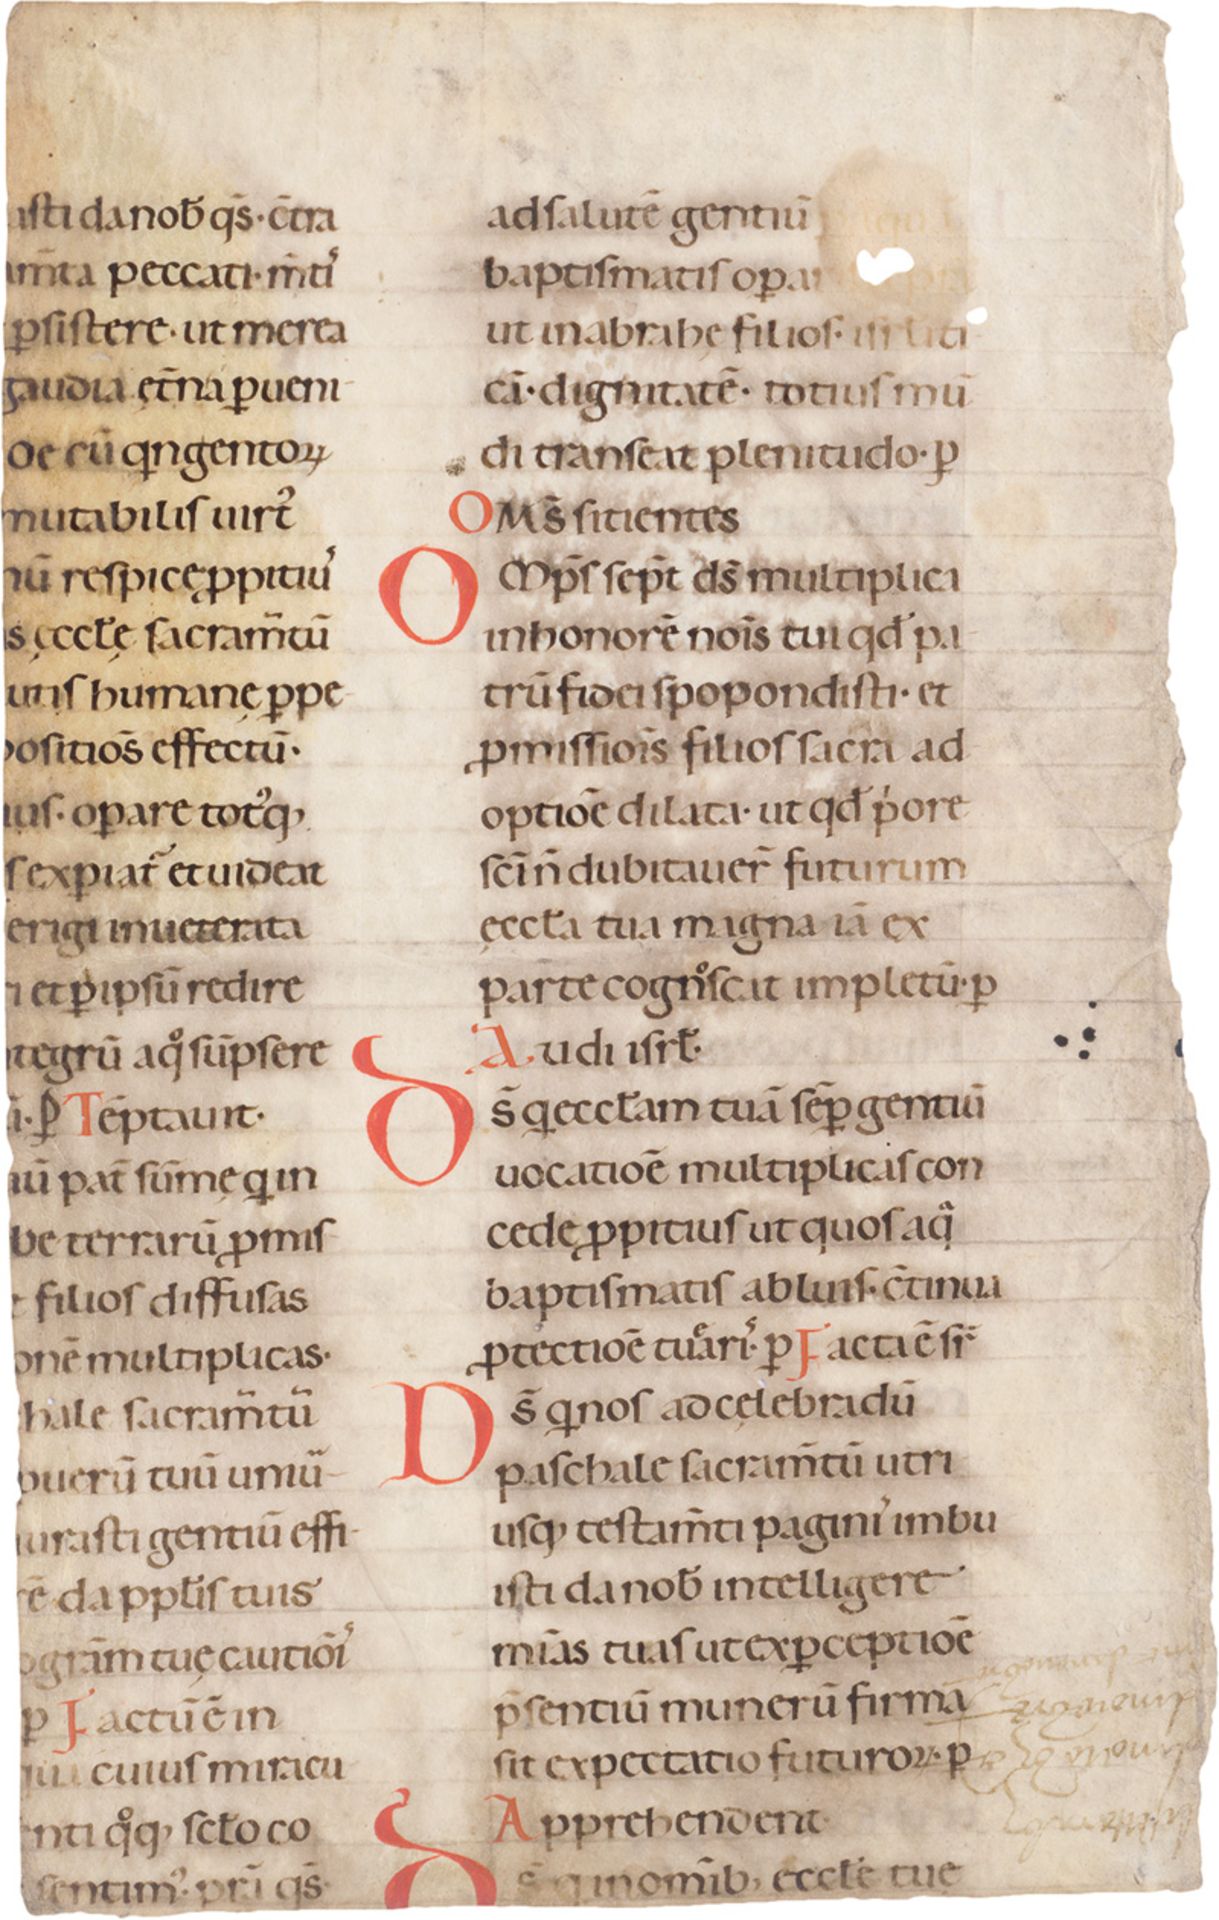 asti da nob̄ qs̄· c̄tra
am̄ta peccati· m̄tī
ꝑsistere· ut merea
gaudia ęt̄na ꝑueni-
Oe cū qͥngentoꝝ
mutabilis uirt᾿
nū respice ꝓpitiuˢ
s ęccłę sacram̄tū
utis humanę ꝑpe
positiōs effectū·
ius· oꝑare totꝰq;
s expiat᾿ et uideat
erigi inueterata
i et ꝑ ipsū redire
ntegrū a qͦ sūpsere
ꝑ Tēptauit·
iū pat̄ sūmę qͥ in
be terrarū ꝓmis
filios diffusas
onē multiplicas·
hale sacram̄tū
puerū tuū umū-
iurasti gentiū effi-
rē da ppłis tuis
ogram tuę
ꝑ Factū ē in
cuius miracu
nti qͦq; scło co
sentimꝰ· qs̄·
ad salutē gentiū
baptismatis oꝑa
ut in abrahę filios·
cā· dignitatē· totius mū
di transeat plenitudo· ꝑ
OMS̄ sitientes
Omp̄s sep̄t ds̄ multiplica
in honorē nōis tui qd̄ pa
trū fidei spopondisti· et
ꝓmissiōis filios sacra ad
optiōe dilata· ut qd̄ pͥore
scī n̄ dubitauer̄ futurum
ęccła tua magna iā ex
parte cognoscat impletū· ꝑ
Audi isrł·
Ds̄ qͥ ecclam tuā sēꝑ gentiū
uocatiōe multiplicas con
cede ꝓpitius ut quos aqͣ
baptismatis abluis· c̄tinua
ꝓtectiōe tuearis· ꝑ Facta ē sr̄
Ds̄ qͥ nos ad celebradū
paschale sacram̄tū utri
usq; testam̄ti paginis imbu
isti da nob̄ intelligere
mīas tuas ut ex ꝑceptiōe
p̄sentiū munerū firma
sit expectatio futuroꝝ· ꝑ
Apprehendent·
Ds̄ qͥ in omīb; ecclę tuę